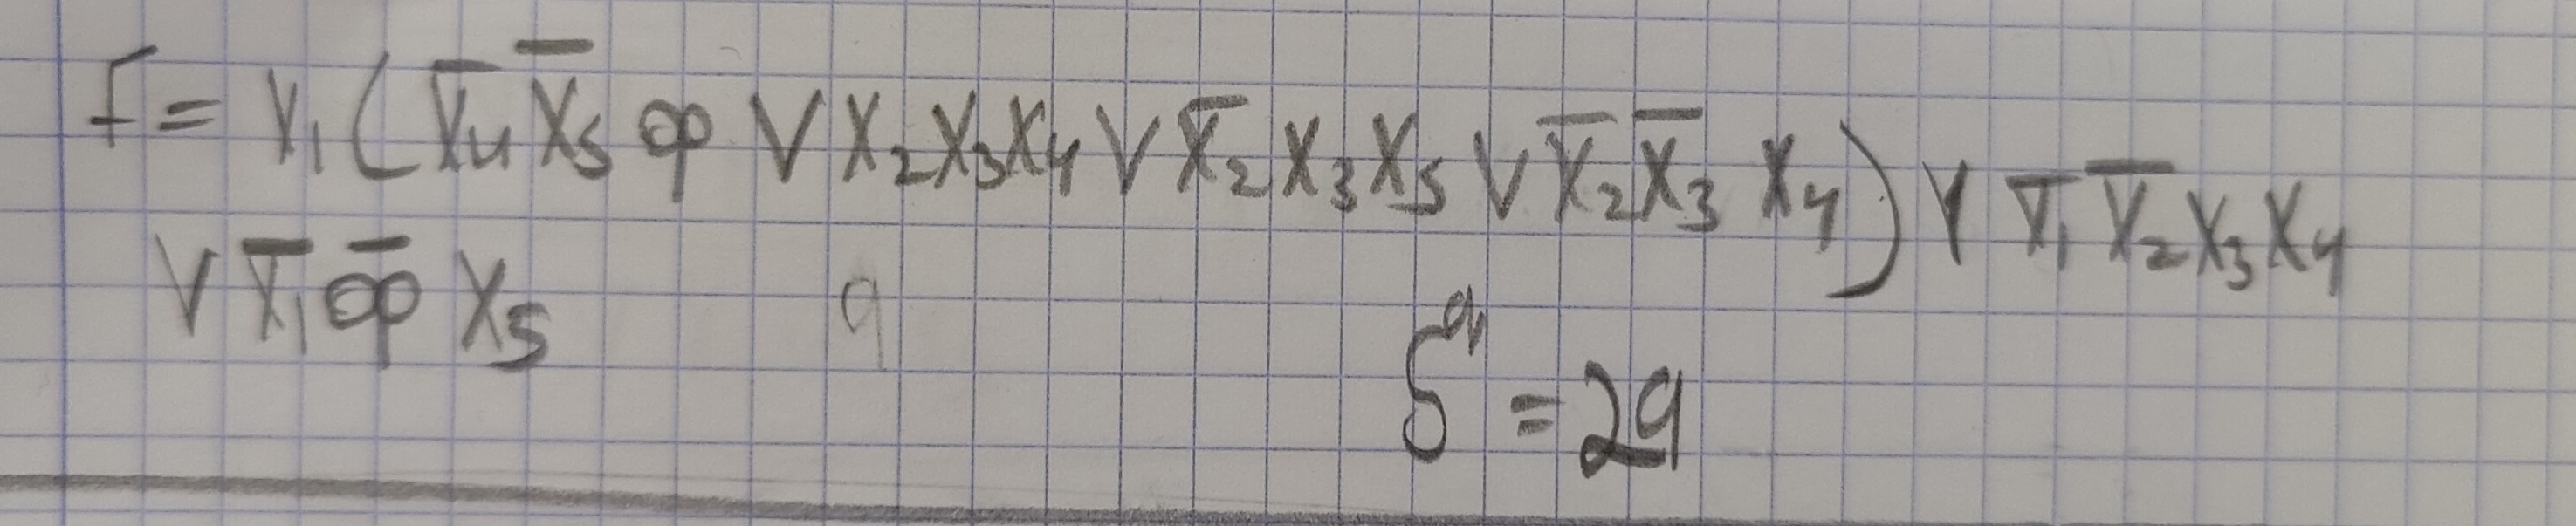 f = x₁(x̅₄x̅₅φ ∨ x₂x₃x₄ ∨ x̅₂x₃x₅ ∨ x̅₂x̅₃x₄) ∨ x̅₁x̅₂x₃x₄
∨ x̅₁φ̅x₅
S^q = 29